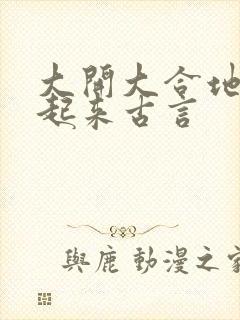 大開大合地
起来古言
與鹿 動漫之家